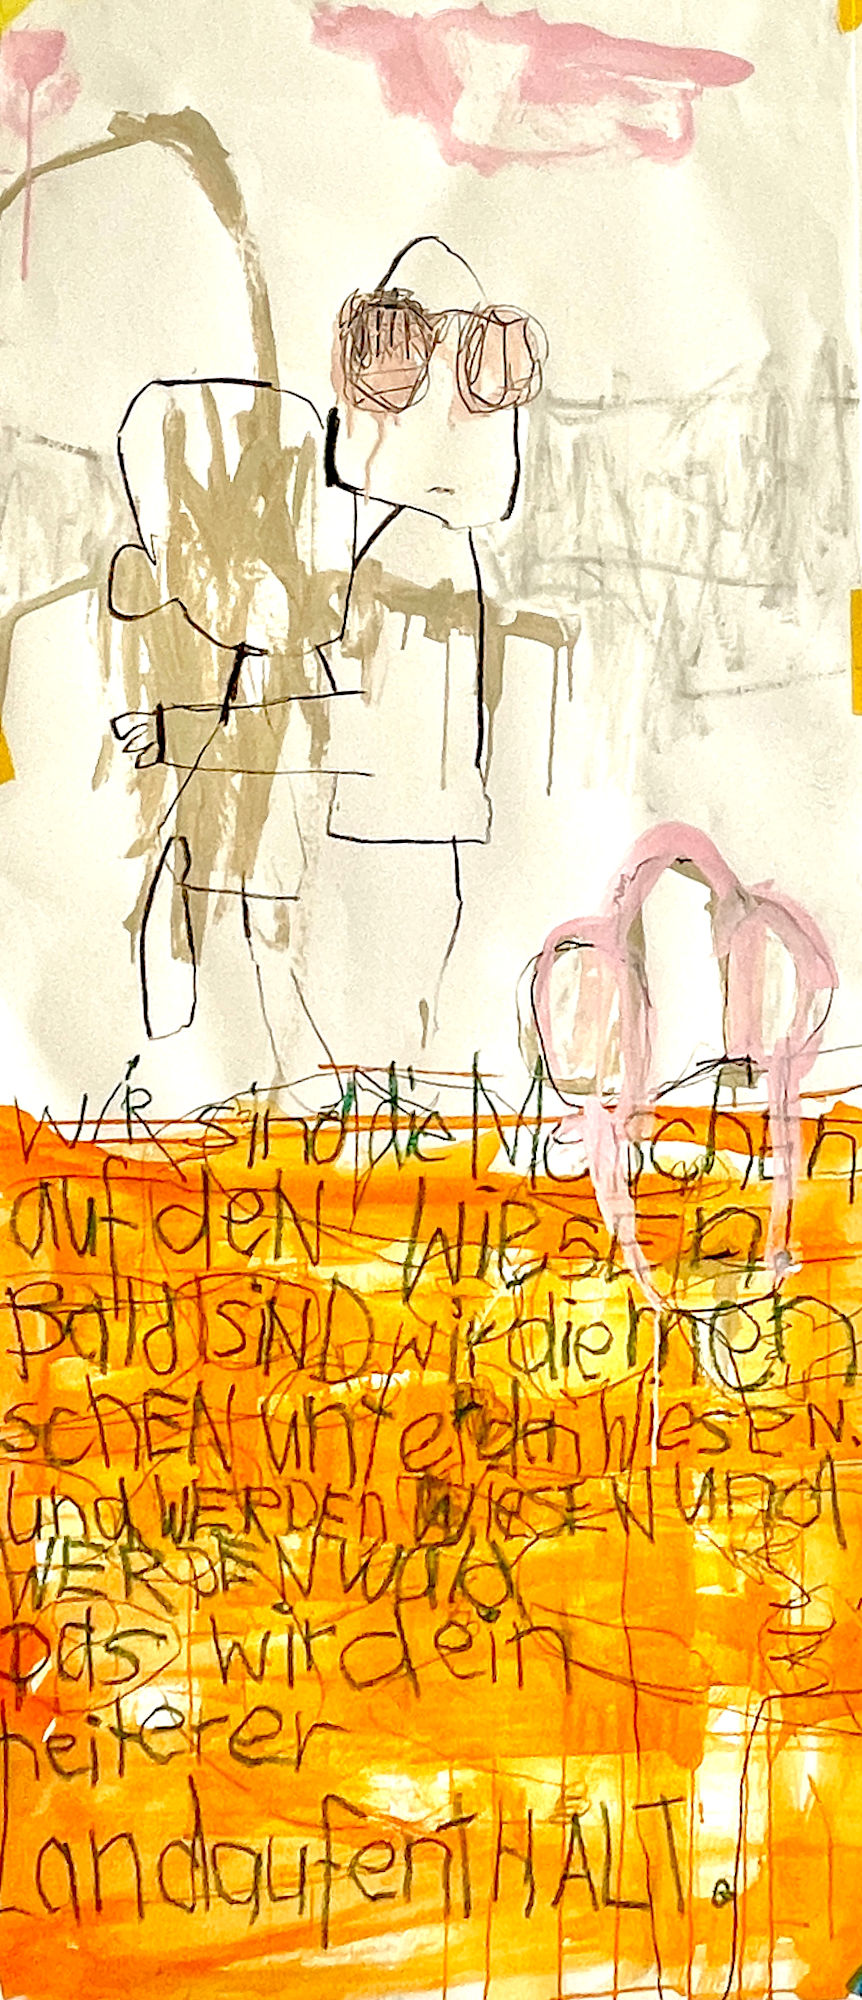 WiR sind die MenschEn
auf deN WiESEn
Bald siND wir die men
schEN unterdn WiesEN.
und WERDEN WiESEN und
WERDEN wald
das wird ein
heiterer
LandaufenTHALT.